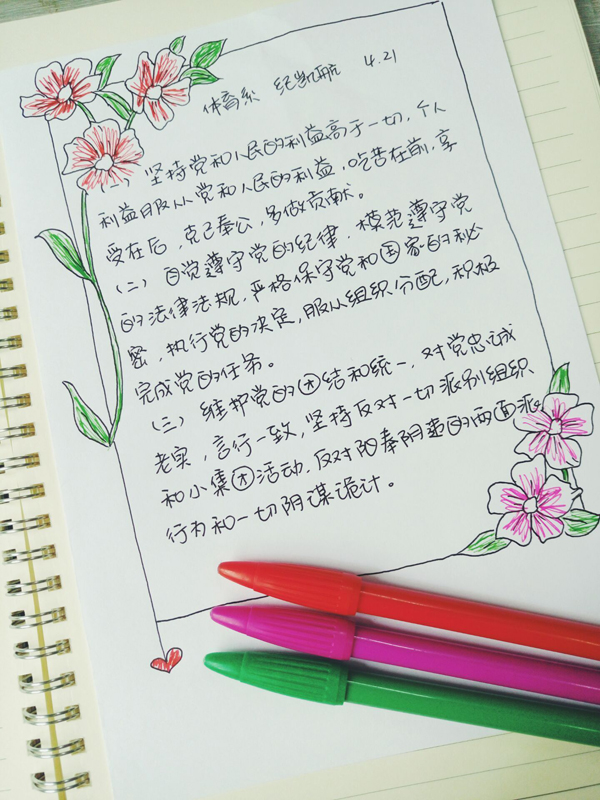 体育系 纪凯航 4.21
(一) 坚持党和人民的利益高于一切，个人
利益服从党和人民的利益，吃苦在前，享
受在后，克己奉公，多做贡献。
(二) 自觉遵守党的纪律，模范遵守党
的法律法规，严格保守党和国家的秘
密，执行党的决定，服从组织分配，积极
完成党的任务。
(三) 维护党的团结和统一，对党忠诚
老实，言行一致，坚持反对一切派别组织
和小集团活动，反对阳奉阴违的两面派
行为和一切阴谋诡计。